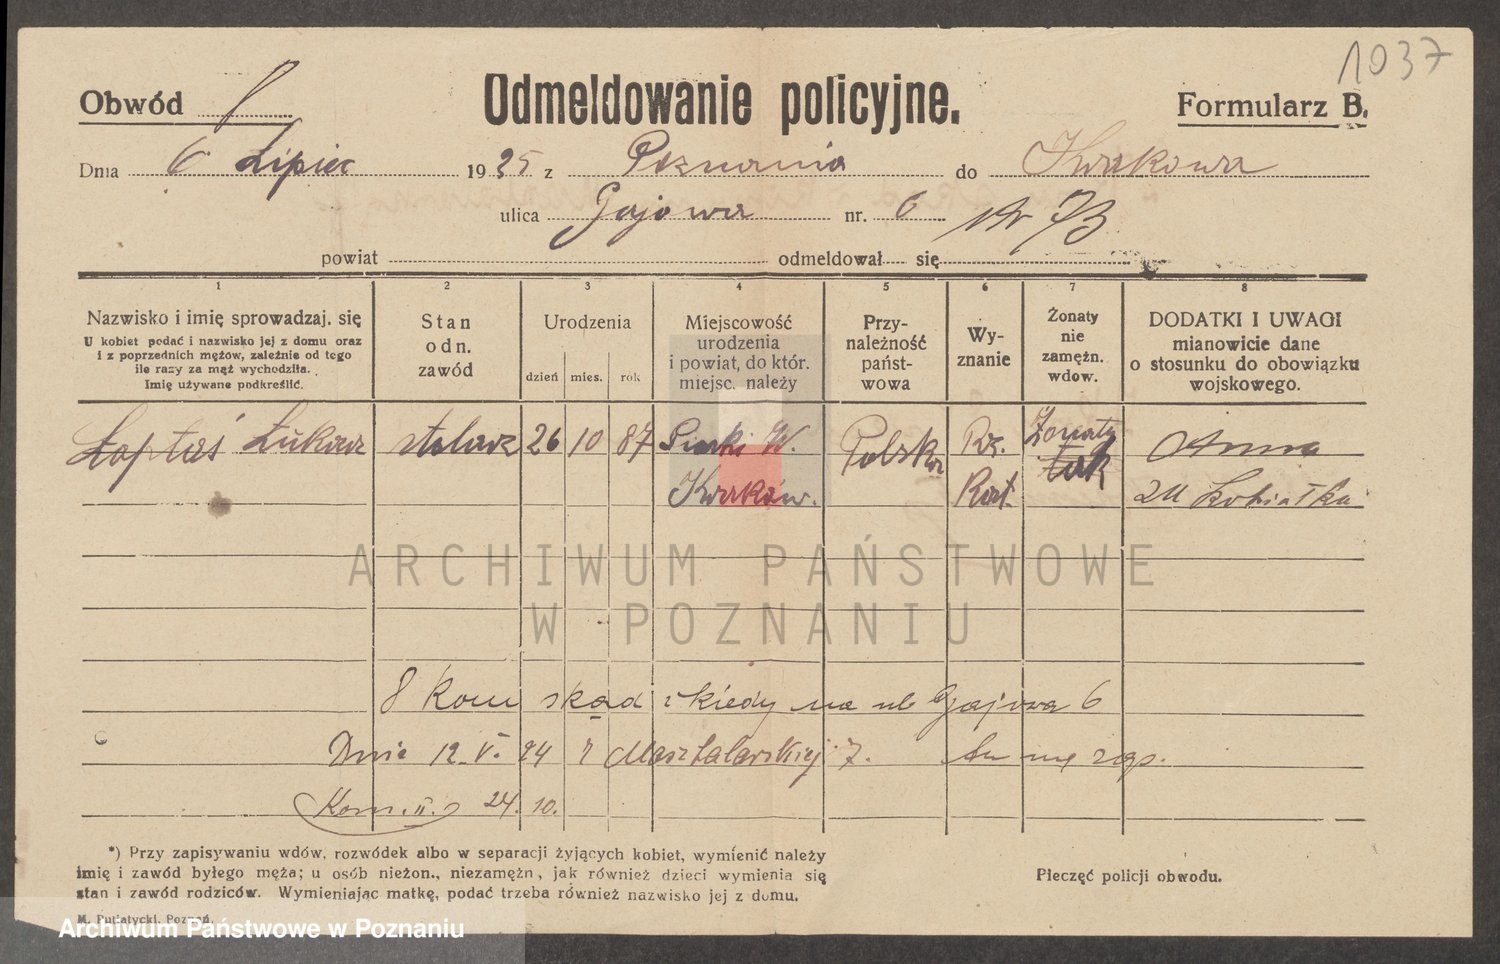 1037
Obwód
Odmeldowanie policyjne.
Formularz B.
Dnia 6 Lipiec 1925 z Poznania do Krakowa
ulica Gajowa nr. 6 Nr 73
powiat odmeldował się
1 2 3 4 5 6 7 8
Nazwisko i imię sprowadzaj. się
U kobiet podać i nazwisko jej z domu oraz
i z poprzednich mężów, zależnie od tego
ile razy za mąż wychodziła.
Imię używane podkreślić.
Stan
odn.
zawód
Urodzenia
dzień mies. rok
Miejscowość
urodzenia
i powiat, do któr.
miejsc. należy
Przy-
należność
państ-
wowa
Wy-
znanie
Żonaty
nie
zamężn.
wdow.
DODATKI I UWAGI
mianowicie dane
o stosunku do obowiązku
wojskowego.
Łaptaś Łukasz stolarz 26 10 87 W. Polska Rz. Żonaty Anna
Kraków. Kat. tak zd Kobiałka
ARCHIWUM PAŃSTWOWE
W POZNANIU
8 Kom skąd i kiedy na ul Gajowa 6
Dnia 12. V. 24 z Masztalarskiej 7.
Kom. II. 24. 10.
*) Przy zapisywaniu wdów, rozwódek albo w separacji żyjących kobiet, wymienić należy
imię i zawód byłego męża; u osób nieżon., niezamężn, jak również dzieci wymienia się
stan i zawód rodziców. Wymieniając matkę, podać trzeba również nazwisko jej z domu.
Pieczęć policji obwodu.
M. Putiatycki, Poznań.
Archiwum Państwowe w Poznaniu